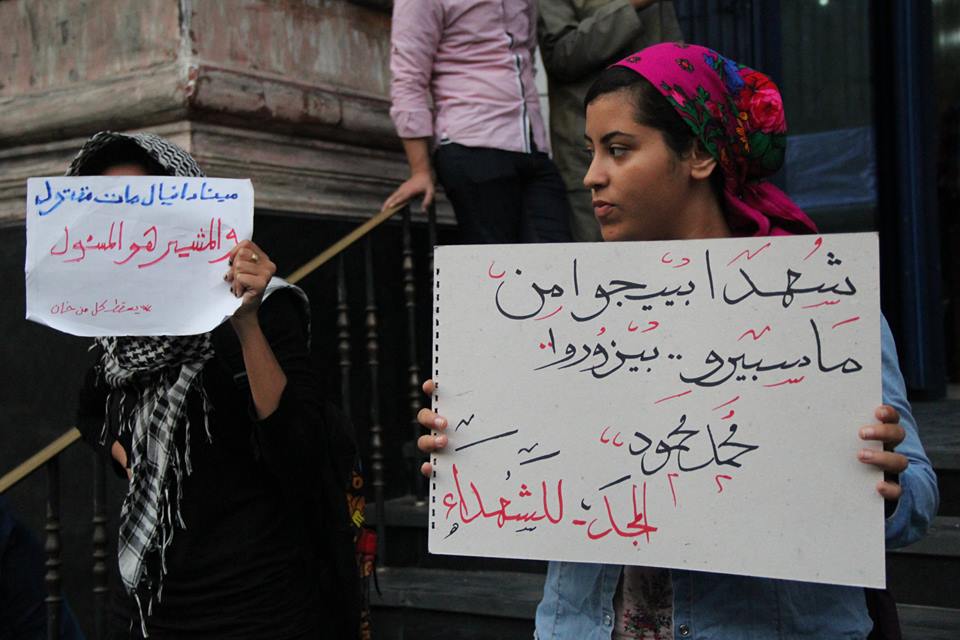 مينا دانيال مات مقتول
والمشير هو المسئول
يسقط كل من خان
شهدا بييجوا من
ماسبيرو .. بيزوروا
محمد محمود
المجد للشهداء